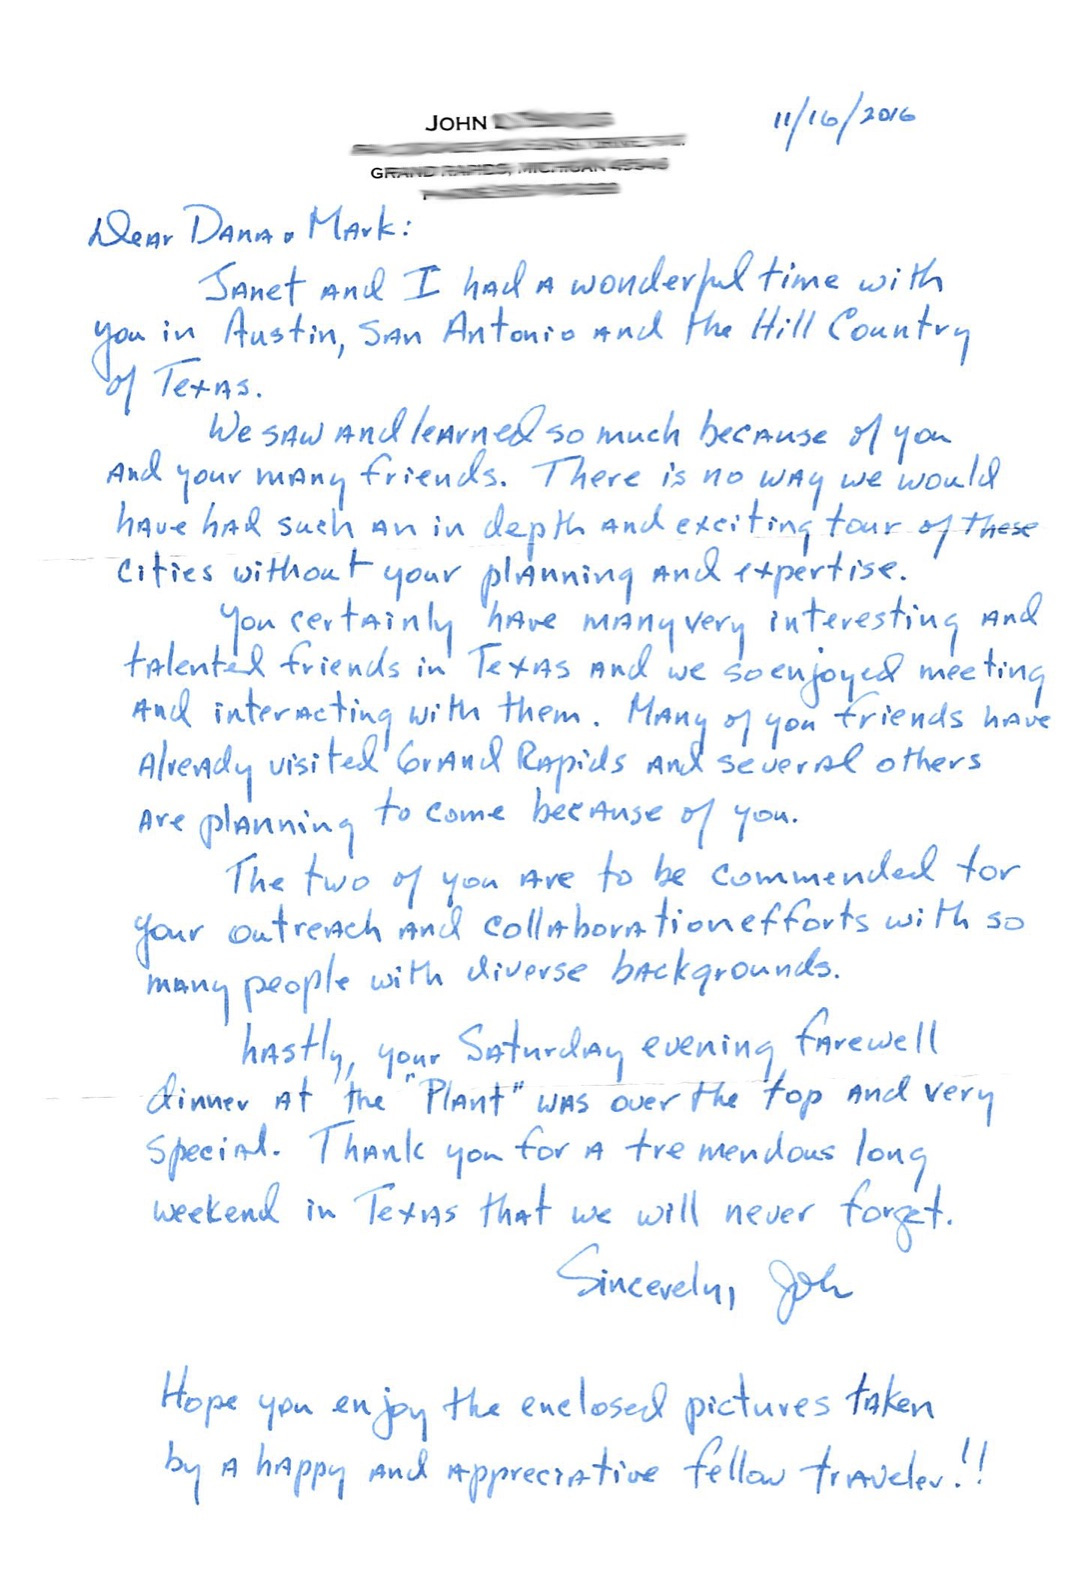 JOHN
11/16/2016
GRAND RAPIDS, MICHIGAN
Dear Dana & Mark:
Janet and I had a wonderful time with
you in Austin, San Antonio and the Hill Country
of Texas.
We saw and learned so much because of you
and your many friends. There is no way we would
have had such an in depth and exciting tour of these
cities without your planning and expertise.
You certainly have many very interesting and
talented friends in Texas and we so enjoyed meeting
and interacting with them. Many of you friends have
already visited Grand Rapids and several others
are planning to come because of you.
The two of you are to be commended for
your outreach and collaboration efforts with so
many people with diverse backgrounds.
Lastly, your Saturday evening farewell
dinner at the "Plant" was over the top and very
special. Thank you for a tremendous long
weekend in Texas that we will never forget.
Sincerely, John
Hope you enjoy the enclosed pictures taken
by a happy and appreciative fellow traveler!!